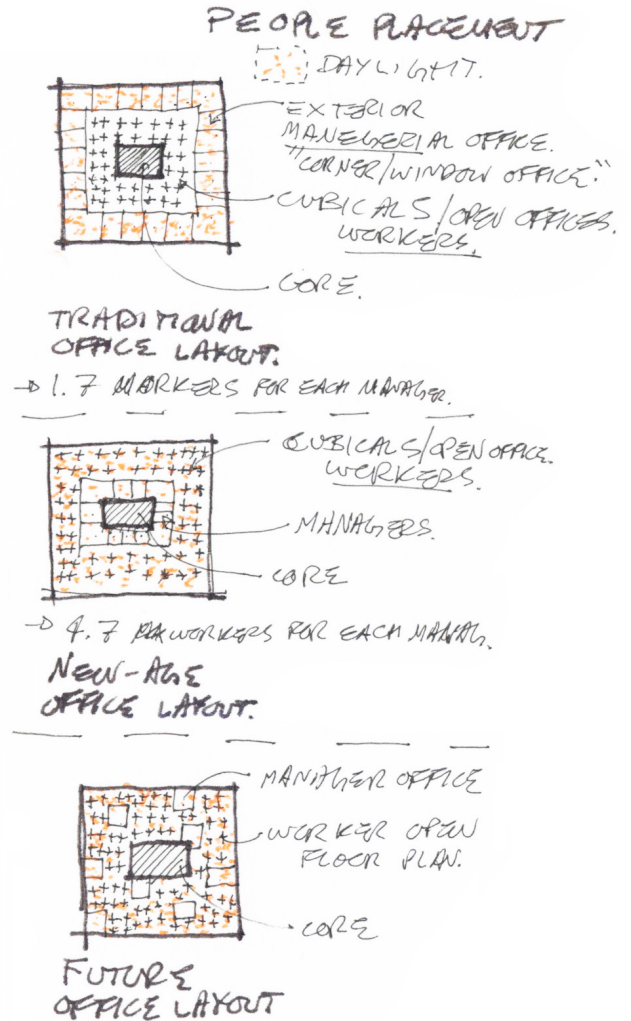 PEOPLE PLACEMENT
DAYLIGHT.
EXTERIOR
MANEGERIAL OFFICE.
"CORNER/WINDOW OFFICE."
CUBICALS/OPEN OFFICES.
WORKERS.
CORE.
TRADITIONAL
OFFICE LAYOUT.
→ 1.7 WORKERS FOR EACH MANAGER.
CUBICALS/OPEN OFFICE.
WORKERS.
MANAGERS.
CORE
→ 4.7 WORKERS FOR EACH MANAG.
NEW-AGE
OFFICE LAYOUT.
MANAGER OFFICE
WORKER OPEN
FLOOR PLAN.
CORE
FUTURE
OFFICE LAYOUT